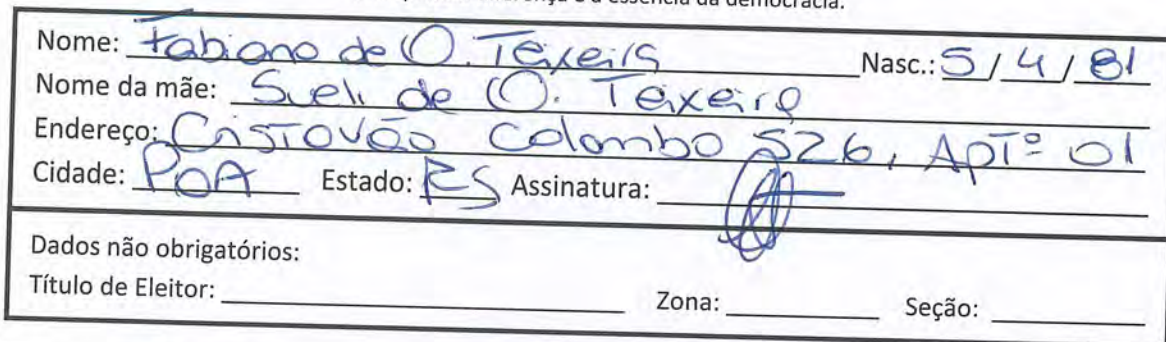 a essência da democracia.
Nome: Fabiano de O. Teixeira Nasc.: 5/4/81
Nome da mãe: Sueli de O. Teixeira
Endereço: Cristovão Colombo 526, APTº 01
Cidade: POA Estado: RS Assinatura:
Dados não obrigatórios:
Título de Eleitor: Zona: Seção: